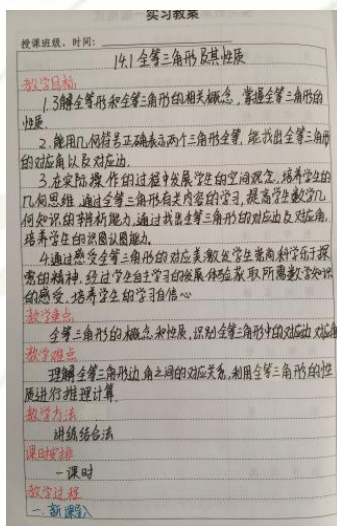 实习教案
授课班级、时间：
14.1 全等三角形及其性质
教学目标：
1.了解全等形和全等三角形的相关概念，掌握全等三角形的
性质.
2.能用几何符号正确表示两个三角形全等，能找出全等三角形
的对应角以及对应边.
3.在实际操作的过程中发展学生的空间观念，培养学生的
几何思维，通过全等三角形有关内容的学习，提高学生数学几
何知识的辨析能力，通过找出全等三角形的对应边及对应角，
培养学生的识图认图能力.
4.通过感受全等三角形的对应美激发学生崇尚科学乐于探
索的精神，经过学生自主学习的发展体验获取所需数学知识
的感受，培养学生的学习自信心
教学重点
全等三角形的概念和性质，识别全等三角形中的对应边对应角
教学难点
理解全等三角形边角之间的对应关系，利用全等三角形的性
质进行推理计算.
教学方法
讲练结合法
课时安排
一课时
教学过程
一.新课导入